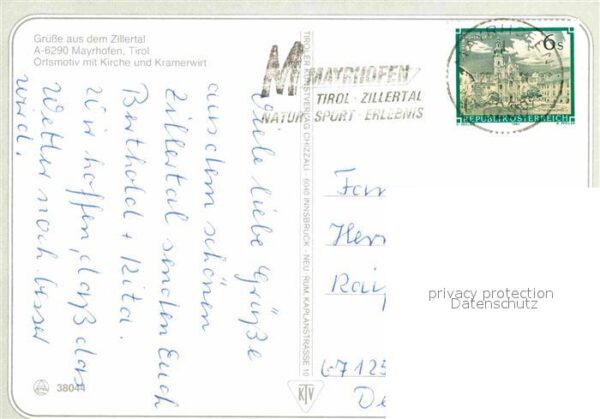 Grüße aus dem Zillertal
A-6290 Mayrhofen, Tirol
Ortsmotiv mit Kirche und Kramerwirt
Viele liebe Grüße
aus dem schönen
Zillertal senden Euch
Berthold + Rita.
Wir hoffen, daß das
Wetter noch besser
wird.
38044
TIROLER KUNSTVERLAG CHIZZALI · 6040 INNSBRUCK - NEU RUM, KAPLANSTRASSE 10
KTV
M MAYRHOFEN
TIROL · ZILLERTAL
NATUR · SPORT · ERLEBNIS
6 S
REPUBLIK ÖSTERREICH
Fam
Herr
privacy protection
Datenschutz